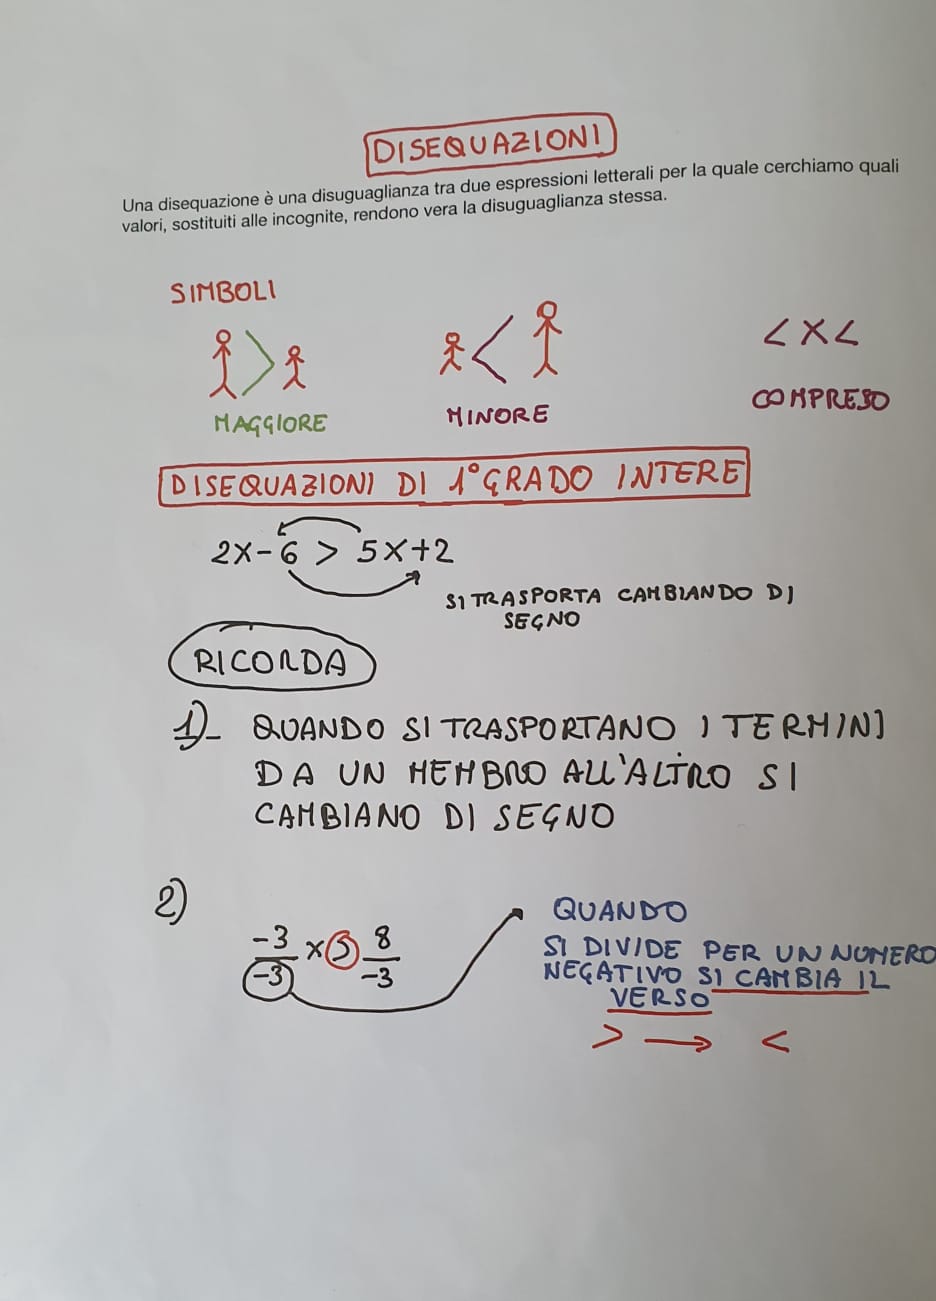 DISEQUAZIONI
Una disequazione è una disuguaglianza tra due espressioni letterali per la quale cerchiamo quali
valori, sostituiti alle incognite, rendono vera la disuguaglianza stessa.
SIMBOLI
> < < X <
MAGGIORE MINORE COMPRESO
DISEQUAZIONI DI 1° GRADO INTERE
2X-6 > 5X+2
SI TRASPORTA CAMBIANDO DI
SEGNO
RICORDA
1)_ QUANDO SI TRASPORTANO I TERMINI
DA UN MEMBRO ALL'ALTRO SI
CAMBIANO DI SEGNO
2)
-3/-3 X > 8/-3
QUANDO
SI DIVIDE PER UN NUMERO
NEGATIVO SI CAMBIA IL
VERSO
> → <